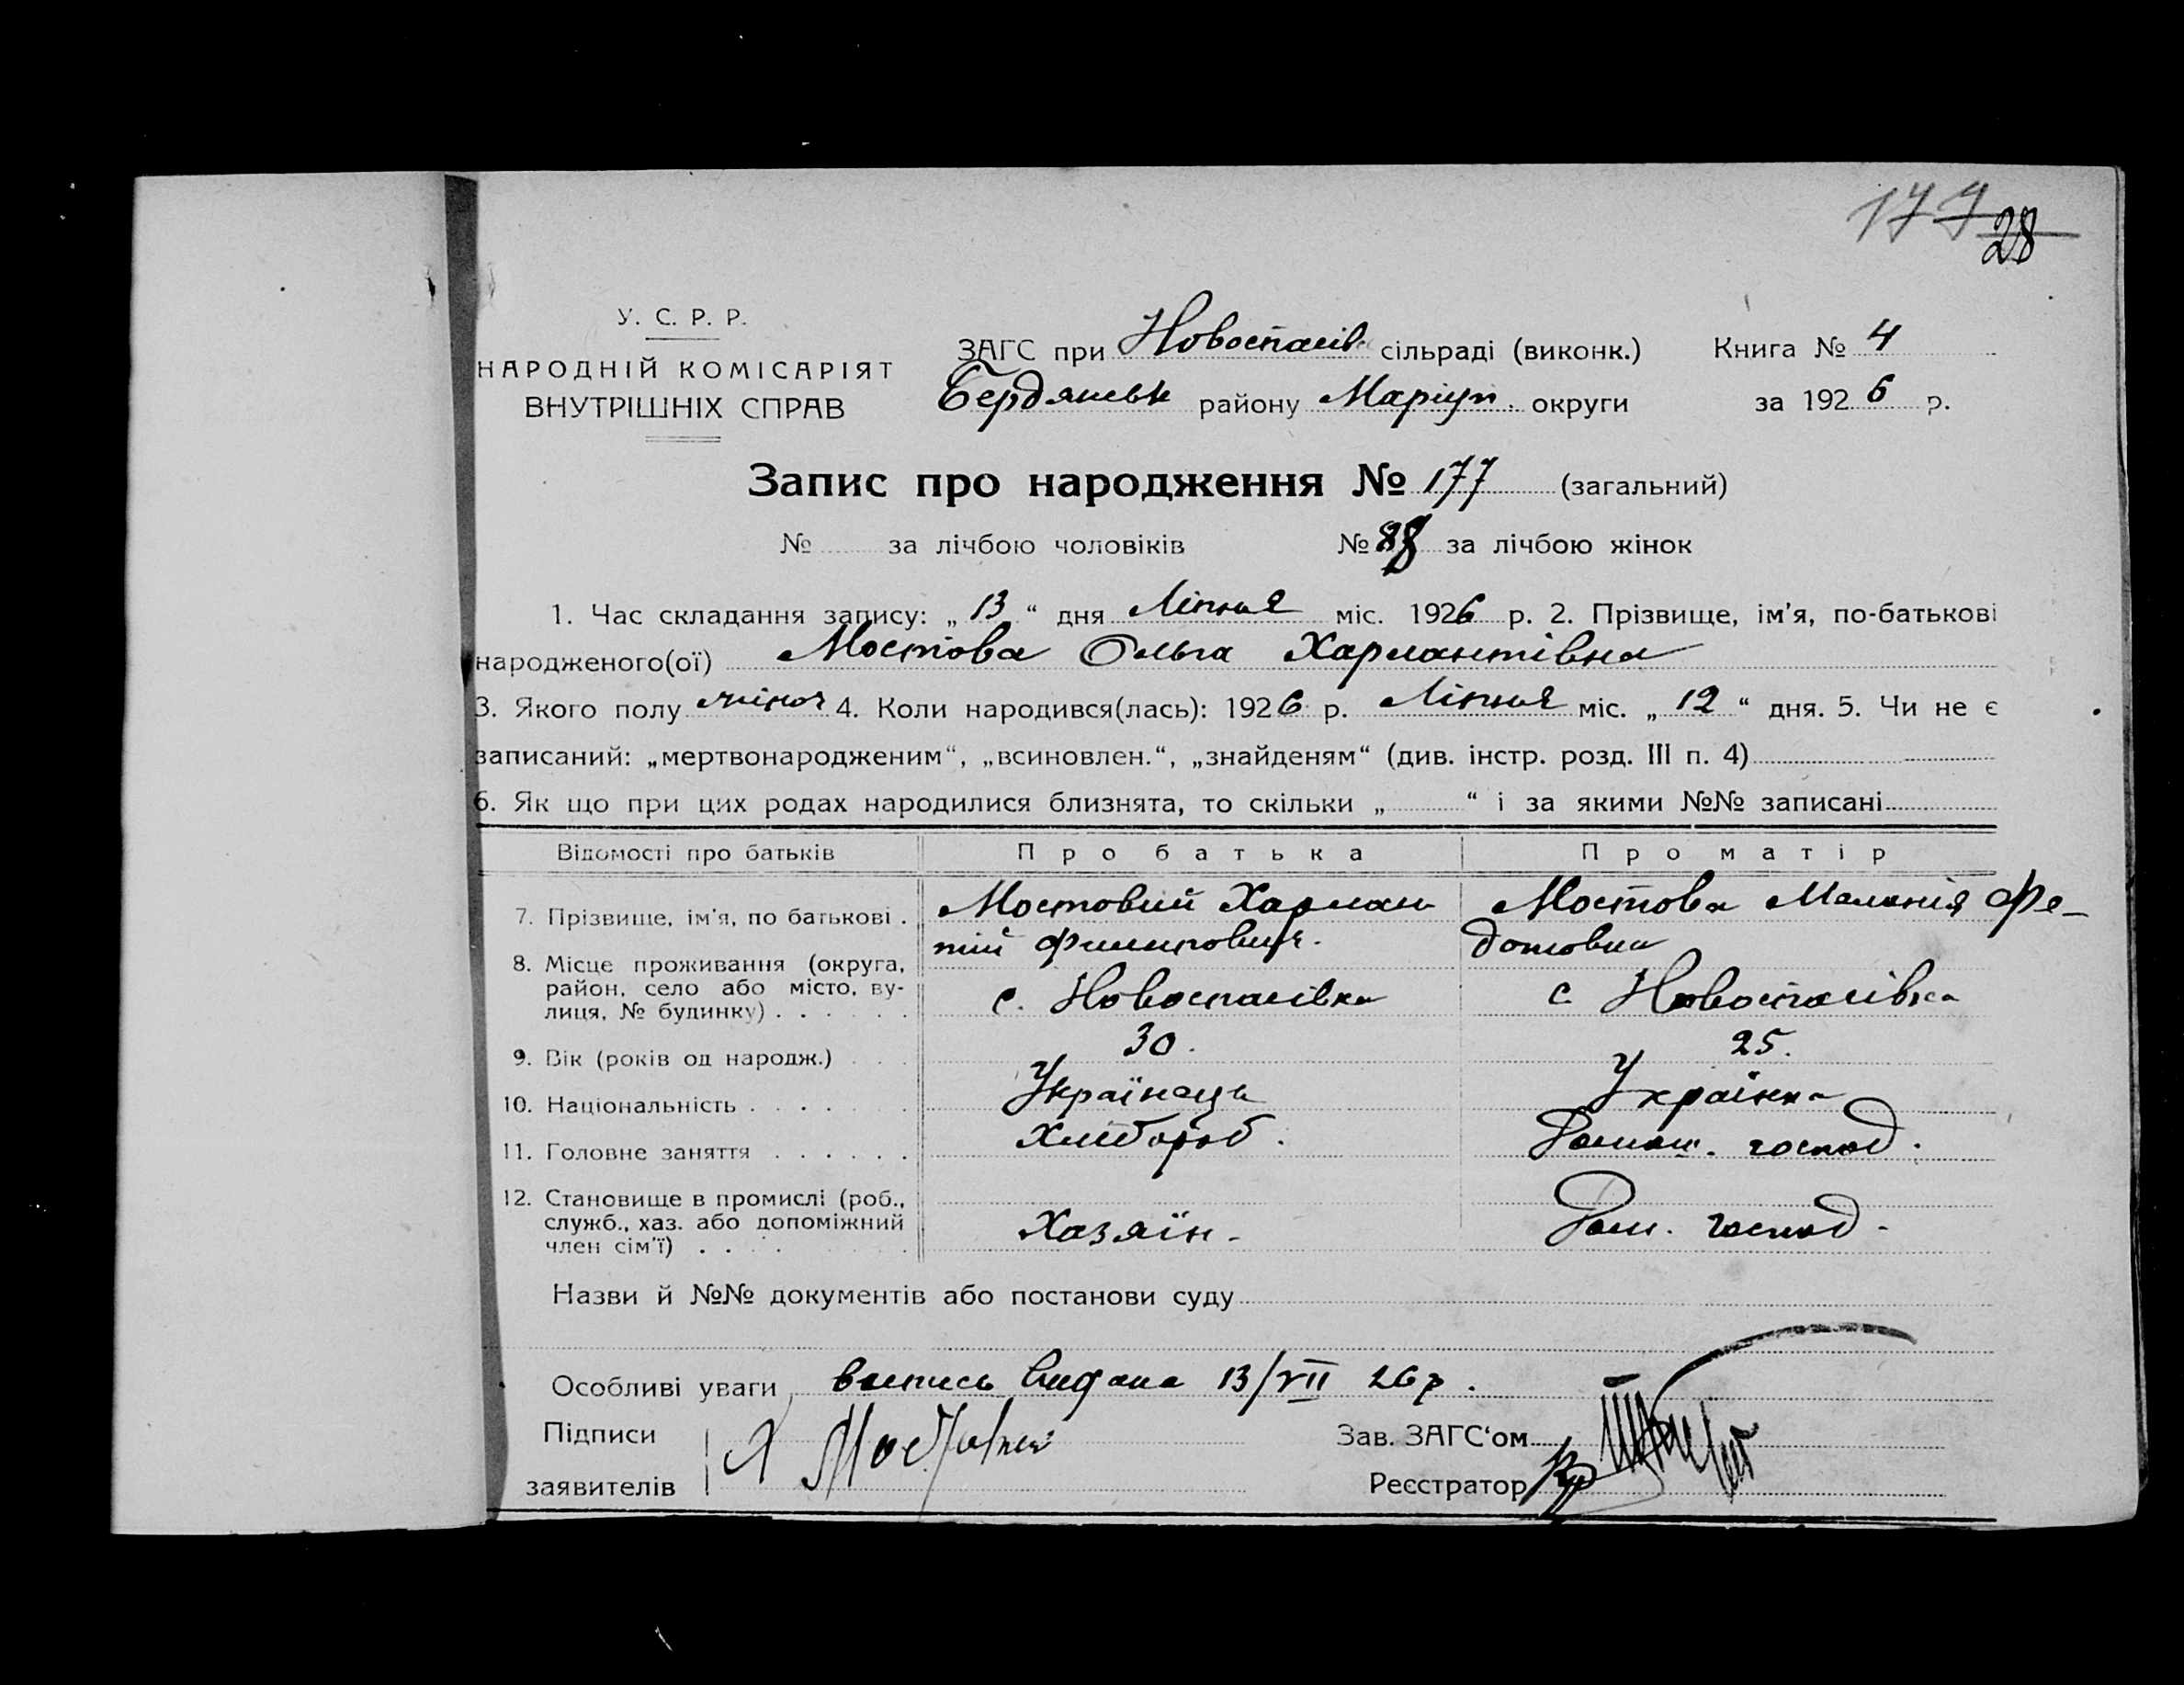 179
28
У. С. Р. Р.
НАРОДНІЙ КОМІСАРІЯТ
ВНУТРІШНІХ СПРАВ
ЗАГС при Новоспасів сільраді (виконк.) Книга № 4
Бердянськ району Маріуп. округи за 1926 р.
Запис про народження № 177 (загальний)
№ за лічбою чоловіків № 88 за лічбою жінок
1. Час складання запису: „ 13 “ дня Ліпня міс. 1926 р. 2. Прізвище, ім'я, по-батькові
народженого(ої) Мостова Ольга Харлантівна
3. Якого полу жіноч 4. Коли народився(лась): 1926 р. Ліпня міс. „ 12 “ дня. 5. Чи не є
записаний: „мертвонародженим“, „всиновлен.“, „знайденям“ (див. інстр. розд. III п. 4)
6. Як що при цих родах народилися близнята, то скільки „ “ і за якими №№ записані
Відомості про батьків Про батька Про матір
7. Прізвище, ім'я, по батькові . Мостовий Харлам Мостова Маланія Фе-
пій Филипович. дотовна
8. Місце проживання (округа,
район, село або місто, ву- с. Новоспасівка с Новоспасівка
лиця, № будинку) . . . . . .
9. Вік (років од народж.) . . . 30. 25.
10. Національність . . . . . . . Українець Українка
11. Головне заняття . . . . . . Хлібороб. Домаш. господ.
12. Становище в промислі (роб.,
служб., хаз. або допоміжний Хазяїн. Дом. господ.
член сім'ї) . . . .
Назви й №№ документів або постанови суду
Особливі уваги випись видана 13/VII 26 р.
Підписи
Зав. ЗАГС‘ом
заявителів
Реєстратор